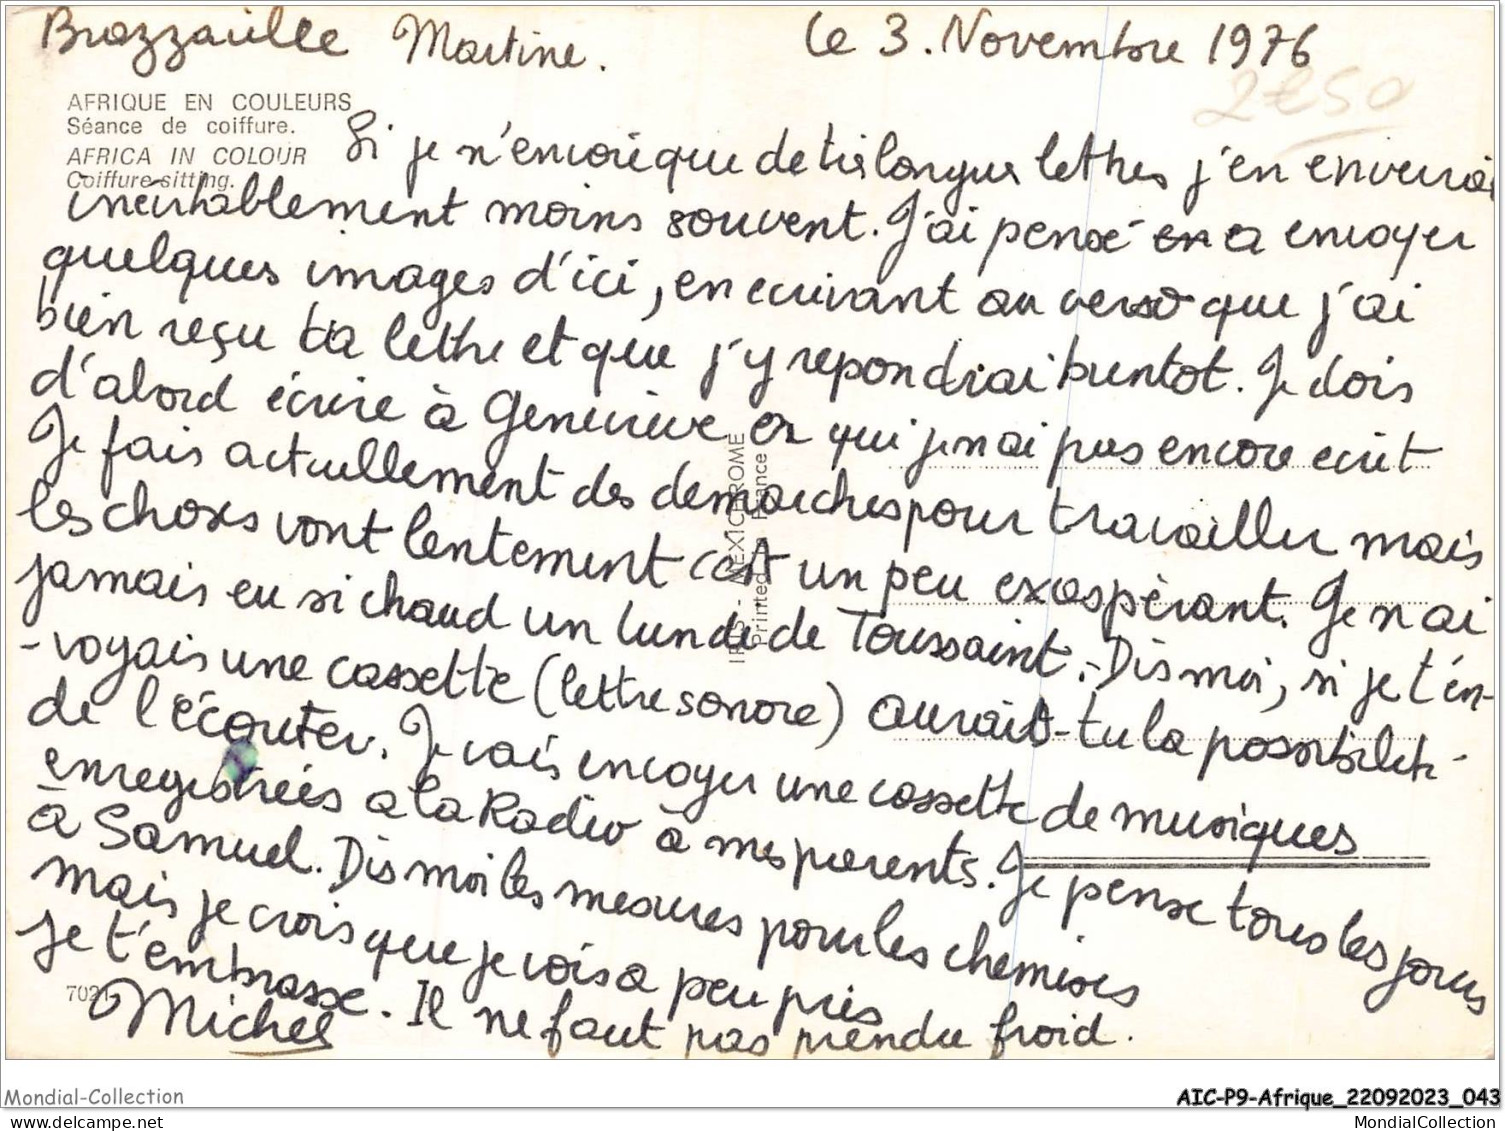 Brazzaville Martine. le 3. Novembre 1976
2€50
AFRIQUE EN COULEURS
Séance de coiffure.
AFRICA IN COLOUR
Coiffure-sitting.
Si je n'envoie que de très longues lettres j'en enverrai
inévitablement moins souvent. J'ai pensé en a envoyer
quelques images d'ici, en ecrivant au verso que j'ai
bien reçu ta lettre et que j'y repondrai bientot. Je dois
d'abord écrire à Geneviève a qui je n ai pas encore ecrit
Je fais actuellement des demarches pour travailler mais
les choses vont lentement c'est un peu exaspèrant. Je n ai
jamais eu si chaud un lundi de Toussaint. - Dis moi, si je t'en-
-voyais une cassette (lettre sonore) aurais-tu la possibilité
de l'écouter. Je vais envoyer une cassette de musiques
enregistrées a la Radio à mes parents. Je pense tous les jours
à Samuel. Dis moi les mesures pour les chemises
mais je crois que je vois a peu près
je t'embrasse. Il ne faut pas prendre froid.
Michel
7021
IRIS - MEXICHROME
Printed in France
Mondial-Collection
AIC-P9-Afrique_22092023_043
www.mondialcollection.net
MondialCollection